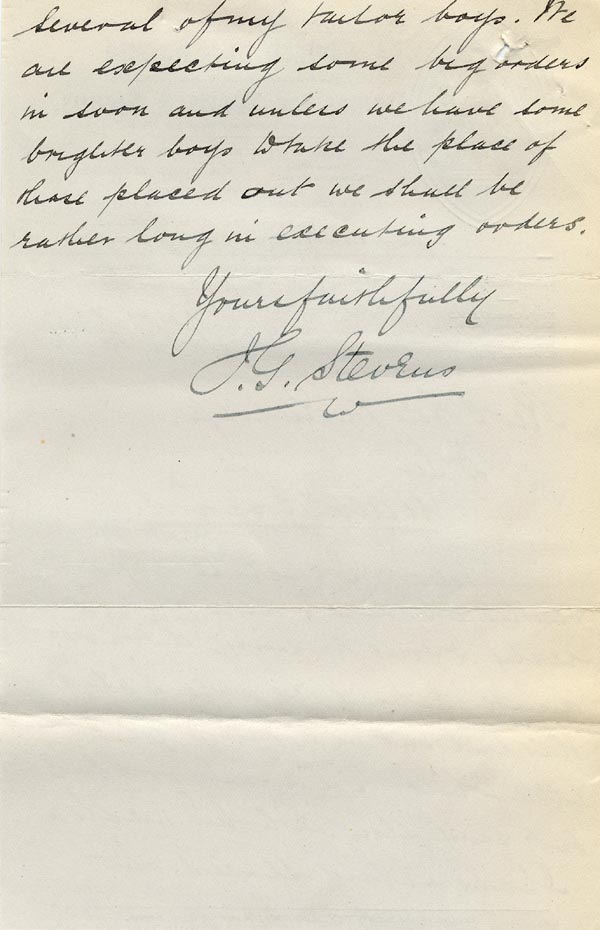 several of my tailor boys. We
are expecting some big orders
in soon and unless we have some
brighter boys to take the place of
those placed out we shall be
rather long in executing orders.
Yours faithfully
J.G. Stevens